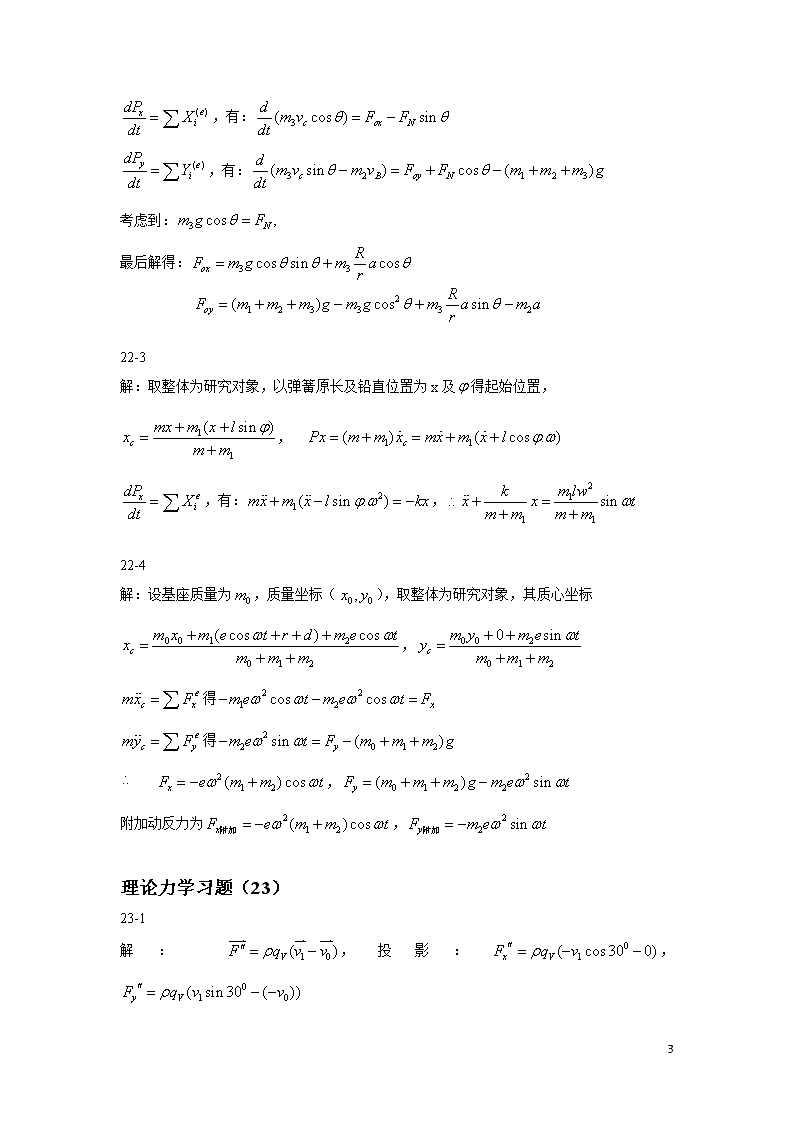 dPₓ/dt = ∑Xᵢ⁽ᵉ⁾，有：d/dt (m₃v_c cosθ) = F_ox − F_N sinθ
dP_y/dt = ∑Yᵢ⁽ᵉ⁾，有：d/dt (m₃v_c sinθ − m₂v_B) = F_oy + F_N cosθ − (m₁ + m₂ + m₃)g
考虑到：m₃g cosθ = F_N,
最后解得：F_ox = m₃g cosθ sinθ + m₃ R/r a cosθ
F_oy = (m₁ + m₂ + m₃)g − m₃g cos²θ + m₃ R/r a sinθ − m₂a
22-3
解：取整体为研究对象，以弹簧原长及铅直位置为 x 及φ得起始位置，
x_c = (mx + m₁(x + l sinφ))/(m + m₁)， Px = (m + m₁)ẋ_c = mẋ + m₁(ẋ + l cosφ.ω)
dPₓ/dt = ∑Xᵢᵉ，有：mẍ + m₁(ẍ − l sinφ.ω²) = −kx，∴ ẍ + k/(m + m₁) x = m₁lw²/(m + m₁) sin ωt
22-4
解：设基座质量为m₀，质量坐标（x₀, y₀），取整体为研究对象，其质心坐标
x_c = (m₀x₀ + m₁(e cosωt + r + d) + m₂e cosωt)/(m₀ + m₁ + m₂)，y_c = (m₀y₀ + 0 + m₂e sinωt)/(m₀ + m₁ + m₂)
mẍ_c = ∑Fₓᵉ得−m₁eω² cosωt − m₂eω² cosωt = Fₓ
mÿ_c = ∑F_yᵉ得−m₂eω² sinωt = F_y − (m₀ + m₁ + m₂)g
∴ Fₓ = −eω²(m₁ + m₂) cosωt，F_y = (m₀ + m₁ + m₂)g − m₂eω² sinωt
附加动反力为F_x附加 = −eω²(m₁ + m₂) cosωt，F_y附加 = −m₂eω² sinωt
理论力学习题（23）
23-1
解：F⃗″ = ρq_V(v⃗₁ − v⃗₀)，投影：Fₓ″ = ρq_V(−v₁ cos30⁰ − 0)，
F_y″ = ρq_V(v₁ sin30⁰ − (−v₀))
3